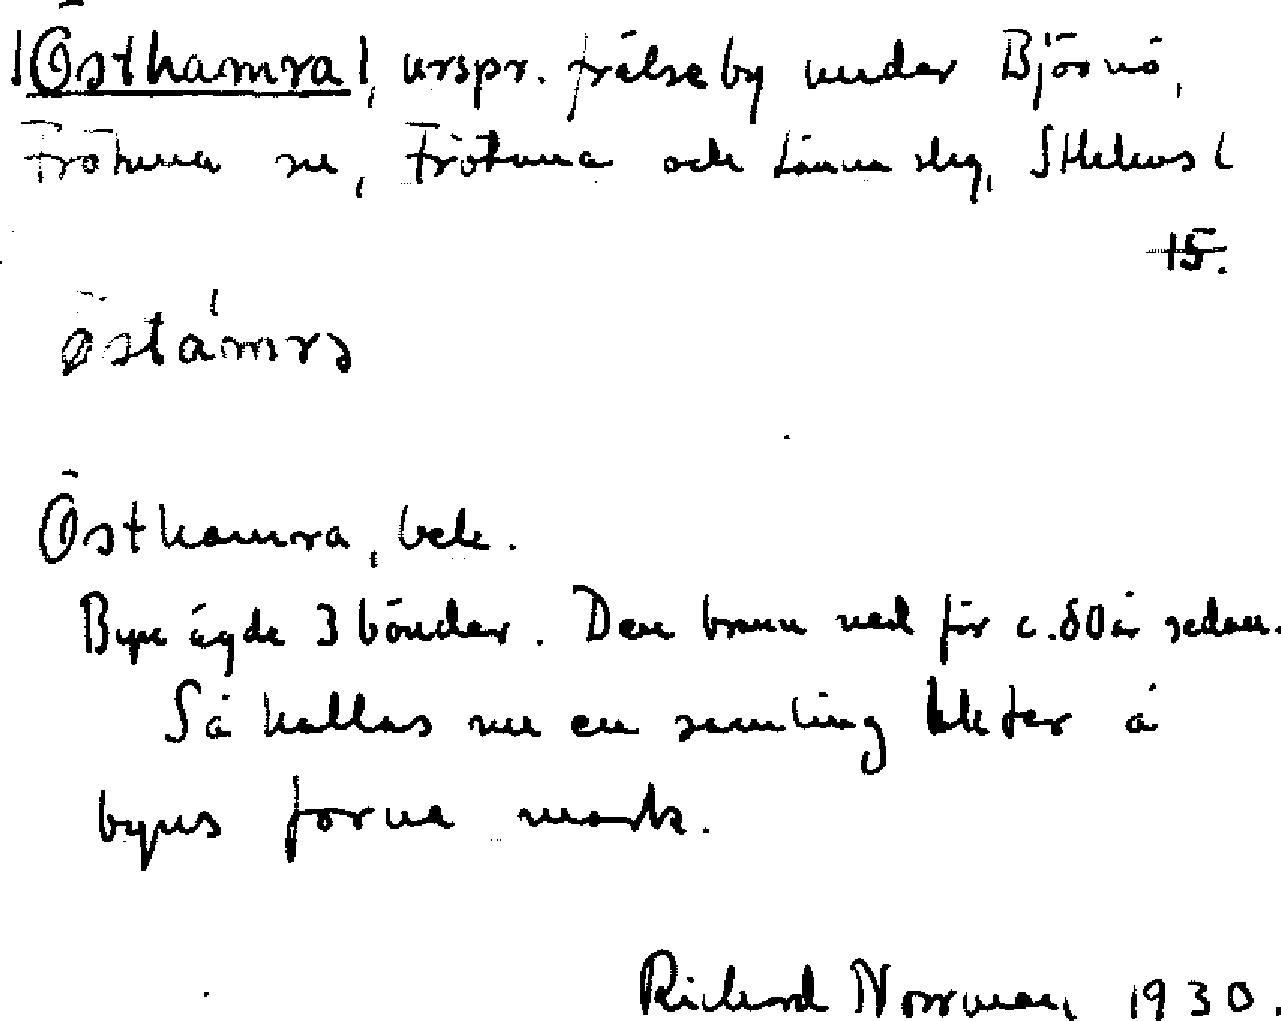 |Östhamra|, urspr. frälseby under Björnö,
Frötuna sn, Frötuna och Länna slg, Sthlms l
15.
östámrɔ
Östhamra, beb.
Byn ägde 3 bönder. Den brann ned för c. 80 år sedan.
Så kallas nu en samling lhter å
byns forna mark.
Richard Norrman 1930.